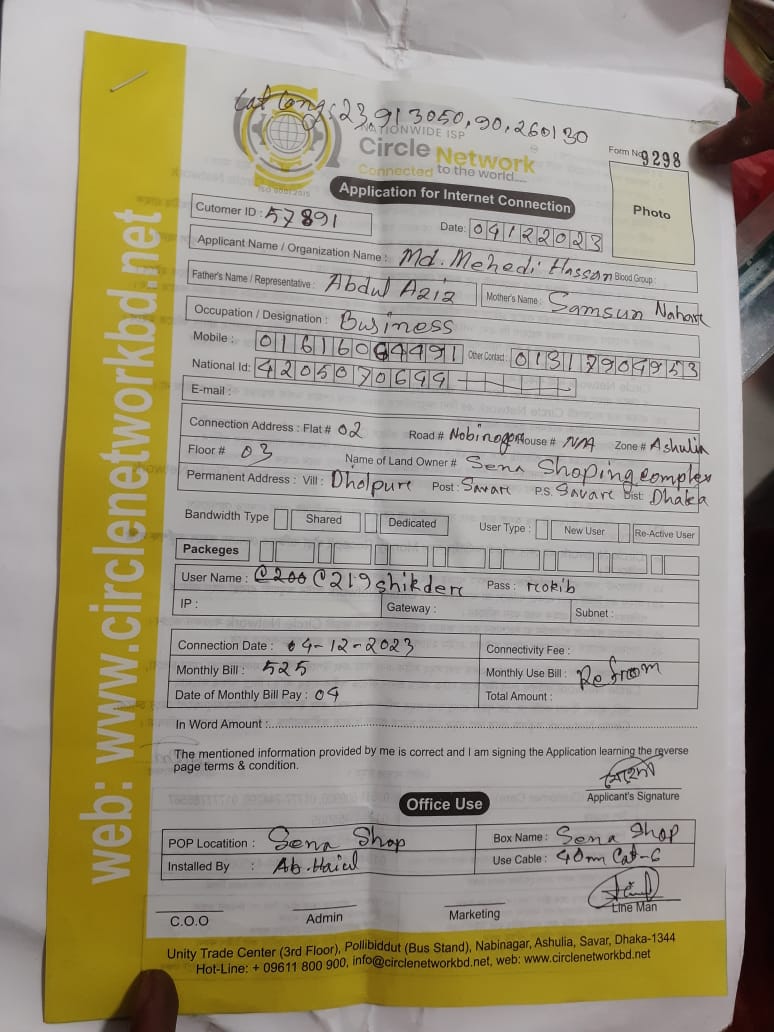 Lat Long: 23,913050, 90,260130
NATIONWIDE ISP
Circle Network
Connected to the world....
ISO 9001:2015
Form No 9298
Application for Internet Connection
Photo
Cutomer ID : 57891
Date: 04122023
Applicant Name / Organization Name : Md. Mehedi Hassan Blood Group :
Father's Name / Representative : Abdul Aziz Mother's Name : Samsun Nahar
Occupation / Designation : Business
Mobile : 01616064491 Other Contact : 01317904953
National Id: 4205070699
E-mail :
Connection Address : Flat # 02 Road # Nobinagar House # N/A Zone # Ashulia
Floor # 03 Name of Land Owner # Sena Shoping complex
Permanent Address : Vill : Dholpure Post : Savar P.S. Savar Dist: Dhaka
Bandwidth Type Shared Dedicated User Type : New User Re-Active User
Packeges
User Name : @219shikder Pass : rokib
IP : Gateway : Subnet :
Connection Date : 04-12-2023 Connectivity Fee :
Monthly Bill : 525 Monthly Use Bill :
Date of Monthly Bill Pay : 04 Total Amount :
In Word Amount :
The mentioned information provided by me is correct and I am signing the Application learning the reverse
page terms & condition.
Applicant's Signature
Office Use
POP Locatition : Sena Shop Box Name : Sena Shop
Installed By : Ab. Haiul Use Cable : 40m Cat-6
C.O.O Admin Marketing Line Man
Unity Trade Center (3rd Floor), Pollibiddut (Bus Stand), Nabinagar, Ashulia, Savar, Dhaka-1344
Hot-Line: + 09611 800 900, info@circlenetworkbd.net, web: www.circlenetworkbd.net
web: www.circlenetworkbd.net